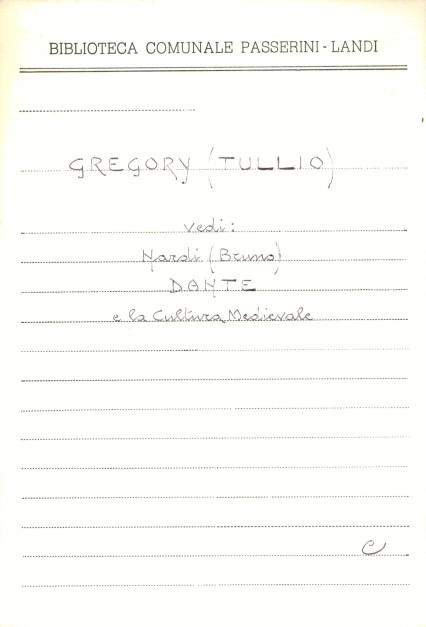 BIBLIOTECA COMUNALE PASSERINI - LANDI
GREGORY (TULLIO)
vedi:
Nardi (Bruno)
DANTE
e la Cultura Medievale
C